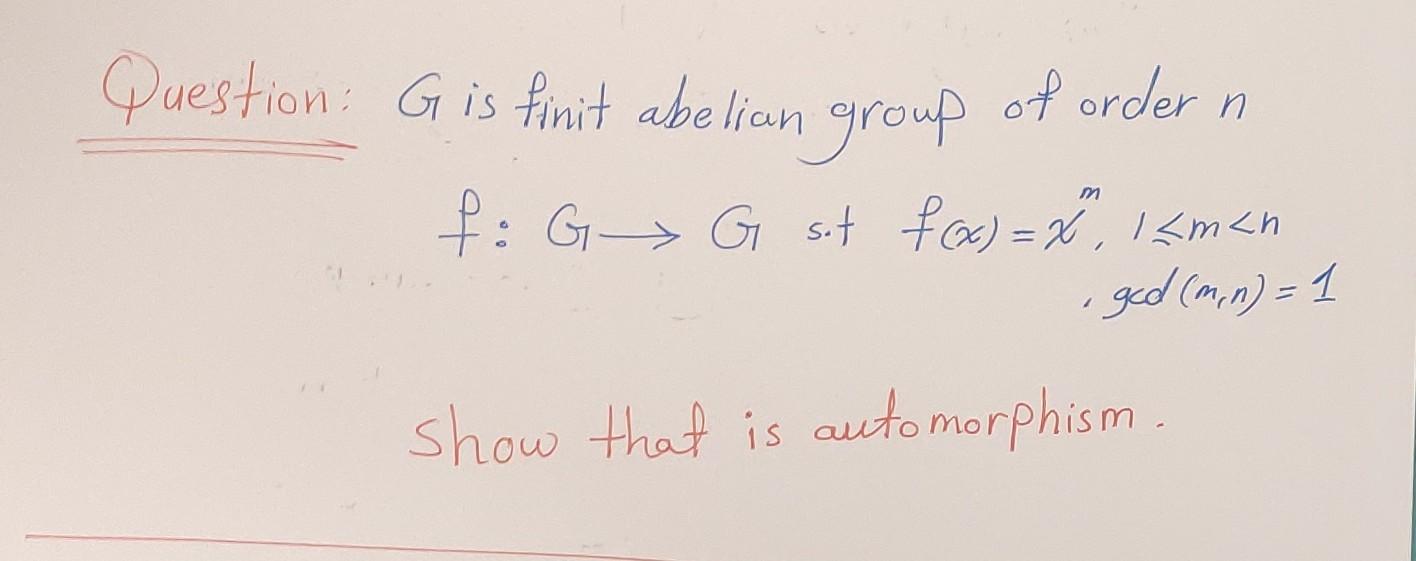 Question: G is finit abelian group of order n
f: G → G s.t f(x) = x^m, 1 ≤ m < n
, gcd(m,n) = 1
Show that is automorphism.